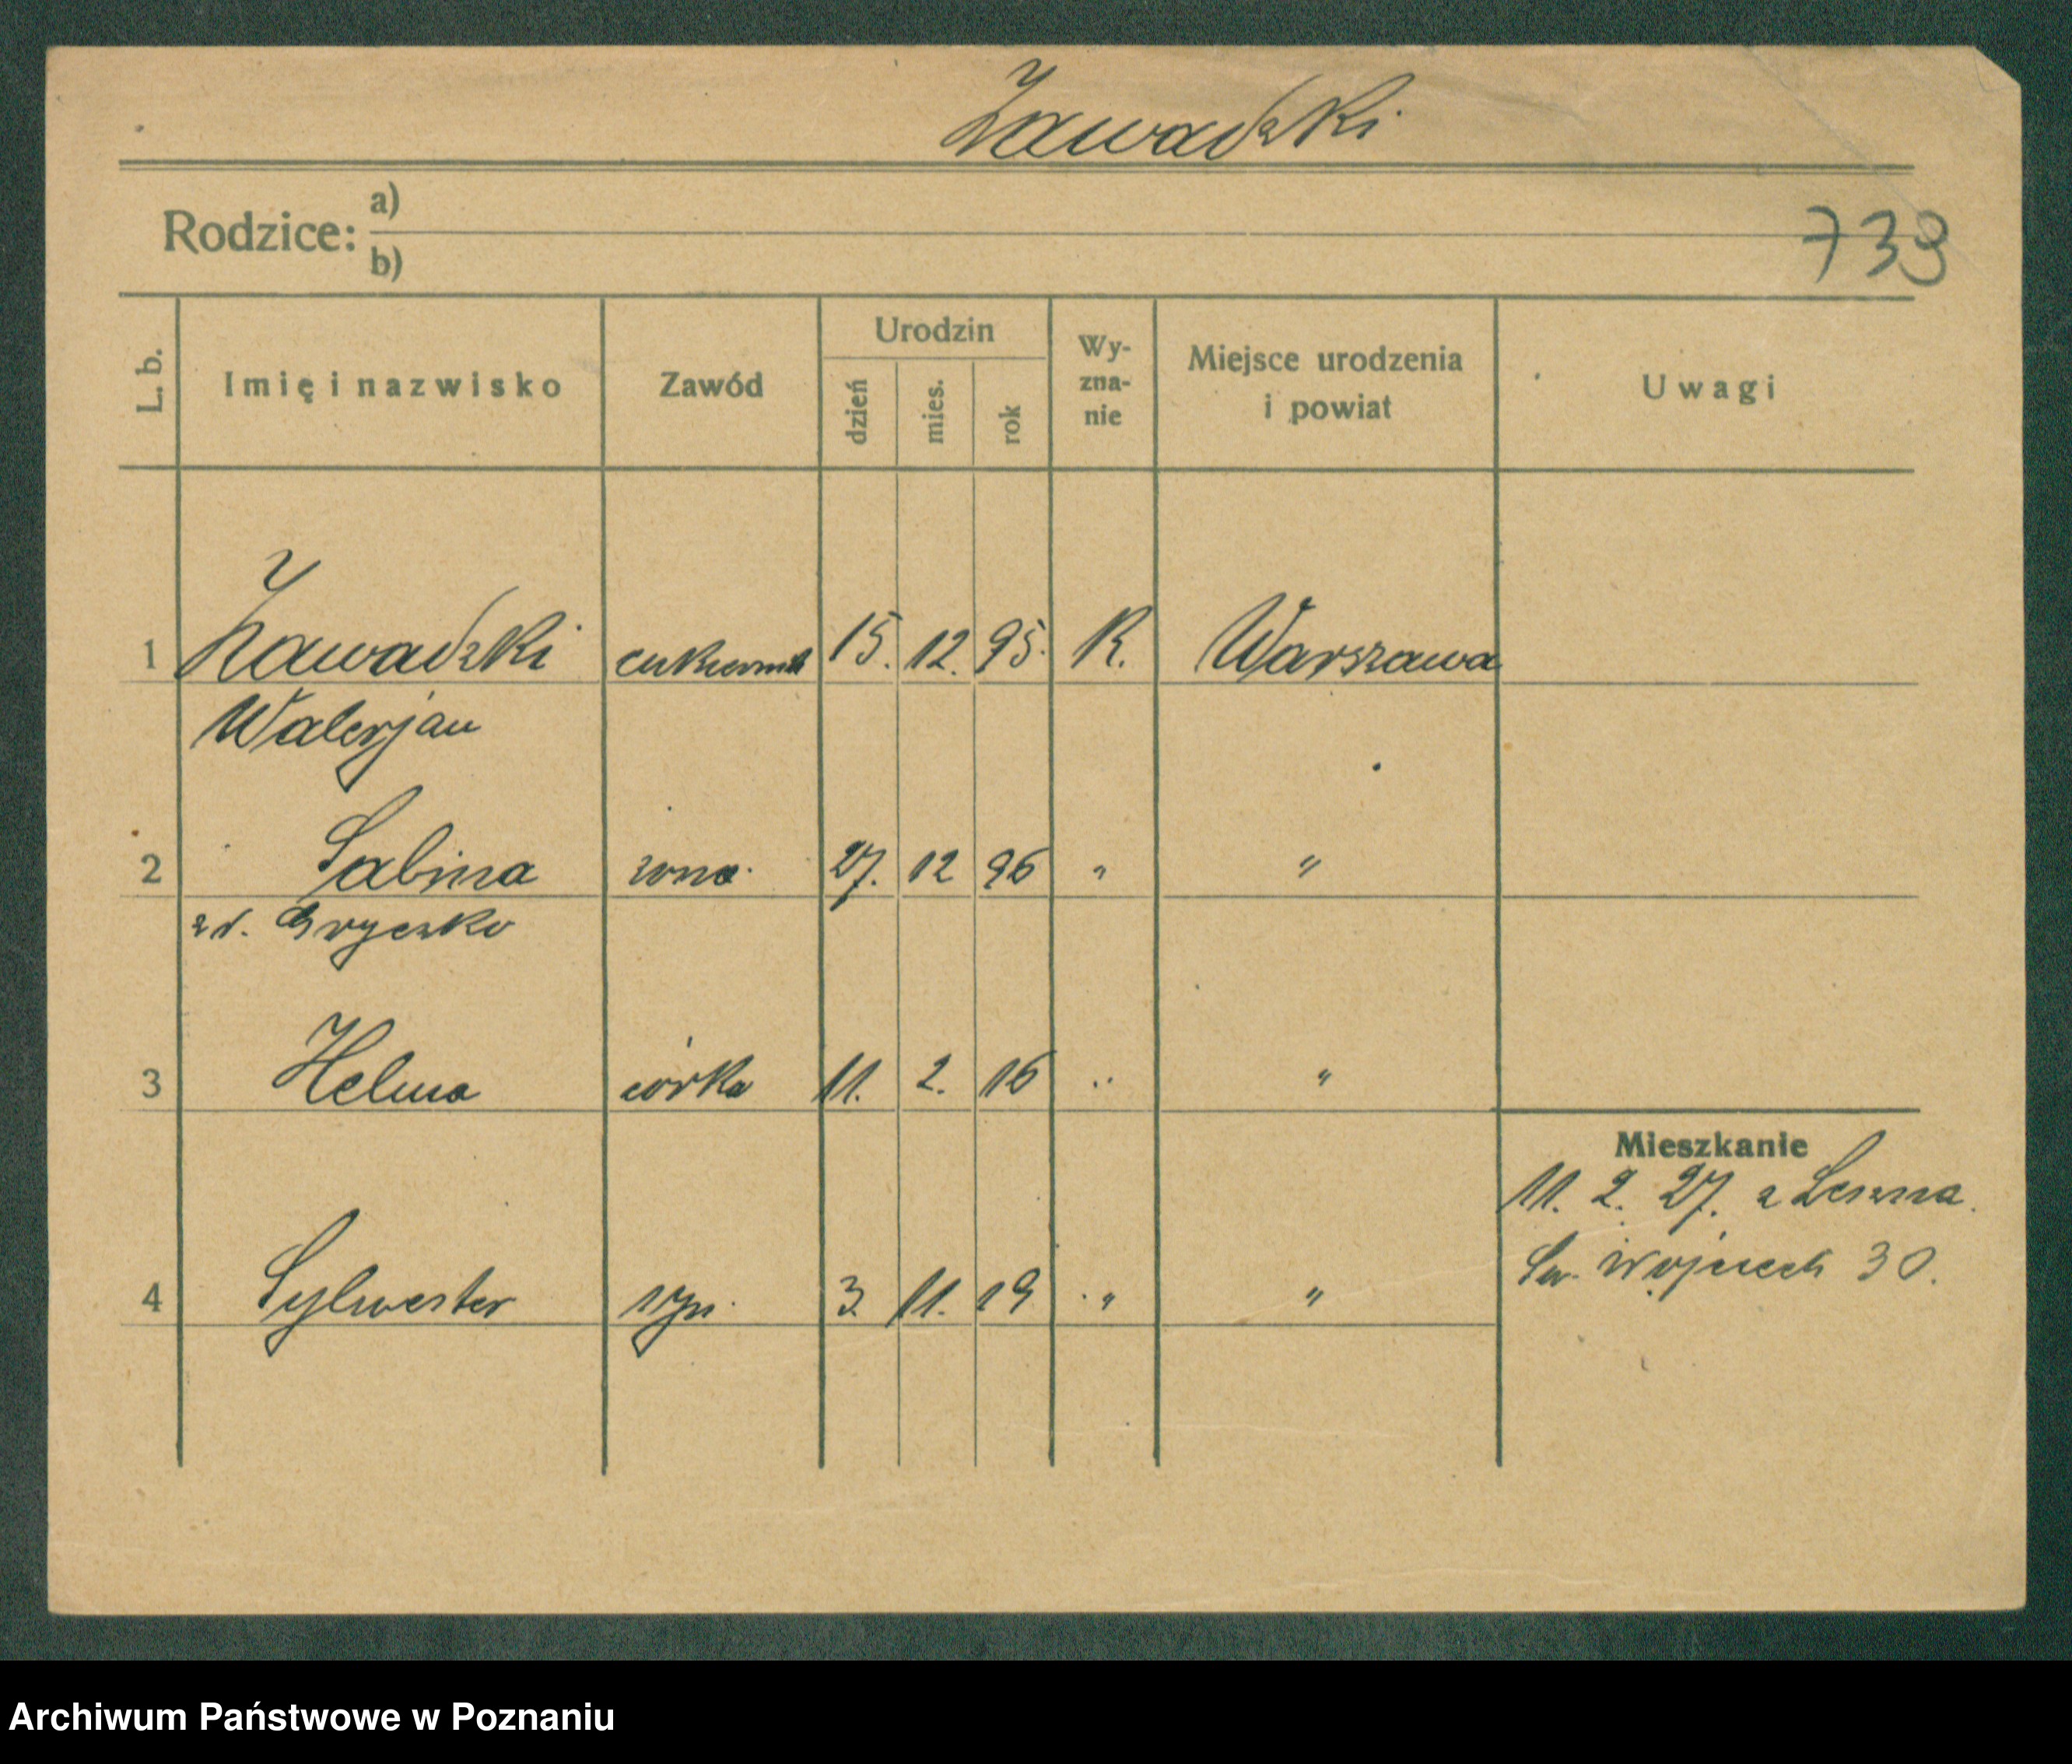 Zawadzki
Rodzice: a)
b)
739
L. b. Imię i nazwisko Zawód Urodzin dzień mies. rok Wyznanie Miejsce urodzenia i powiat Uwagi
1 Zawadzki cukiernik 15. 12. 95. R. Warszawa
Walerjan
2 Sabina żona 27. 12 96 " "
zd. Gryczko
3 Helena córka 11. 2. 16 " "
Mieszkanie
11. 2. 27. z Leszna.
Św. Wojciech 30.
4 Sylwester syn. 3. 11. 19 " "
Archiwum Państwowe w Poznaniu